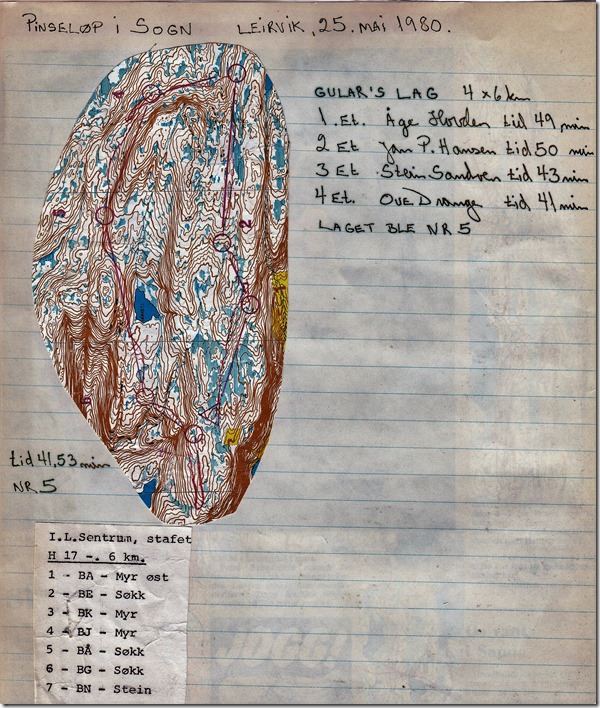 PINSELØP I SOGN LEIRVIK, 25. MAI 1980.
GULAR'S LAG 4 x 6 km
1. Et. Åge Hovden tid 49 min
2 Et Jan P. Hansen tid 50 min
3 Et Stein Sandven tid 43 min
4 Et. Ove Drange tid 41 min
LAGET BLE NR 5
2
tid 41,53 min
NR. 5
I.L.Sentrum, stafet
H 17 -. 6 km.
1 - BA - Myr øst
2 - BE - Søkk
3 - BK - Myr
4 - BJ - Myr
5 - BÅ - Søkk
6 - BG - Søkk
7 - BN - Stein